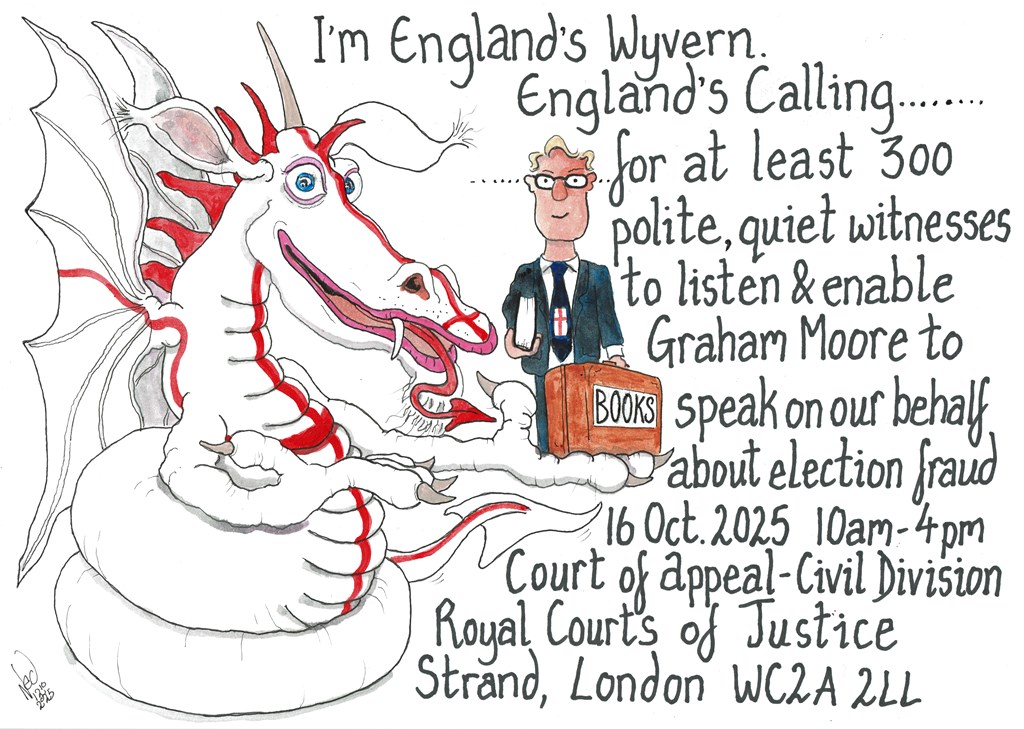 I'm England's Wyvern.
England's Calling.........
......... for at least 300
polite, quiet witnesses
to listen & enable
Graham Moore to
BOOKS
speak on our behalf
about election fraud
16 Oct. 2025 10am-4pm
Court of appeal-Civil Division
Royal Courts of Justice
Strand, London WC2A 2LL
2025